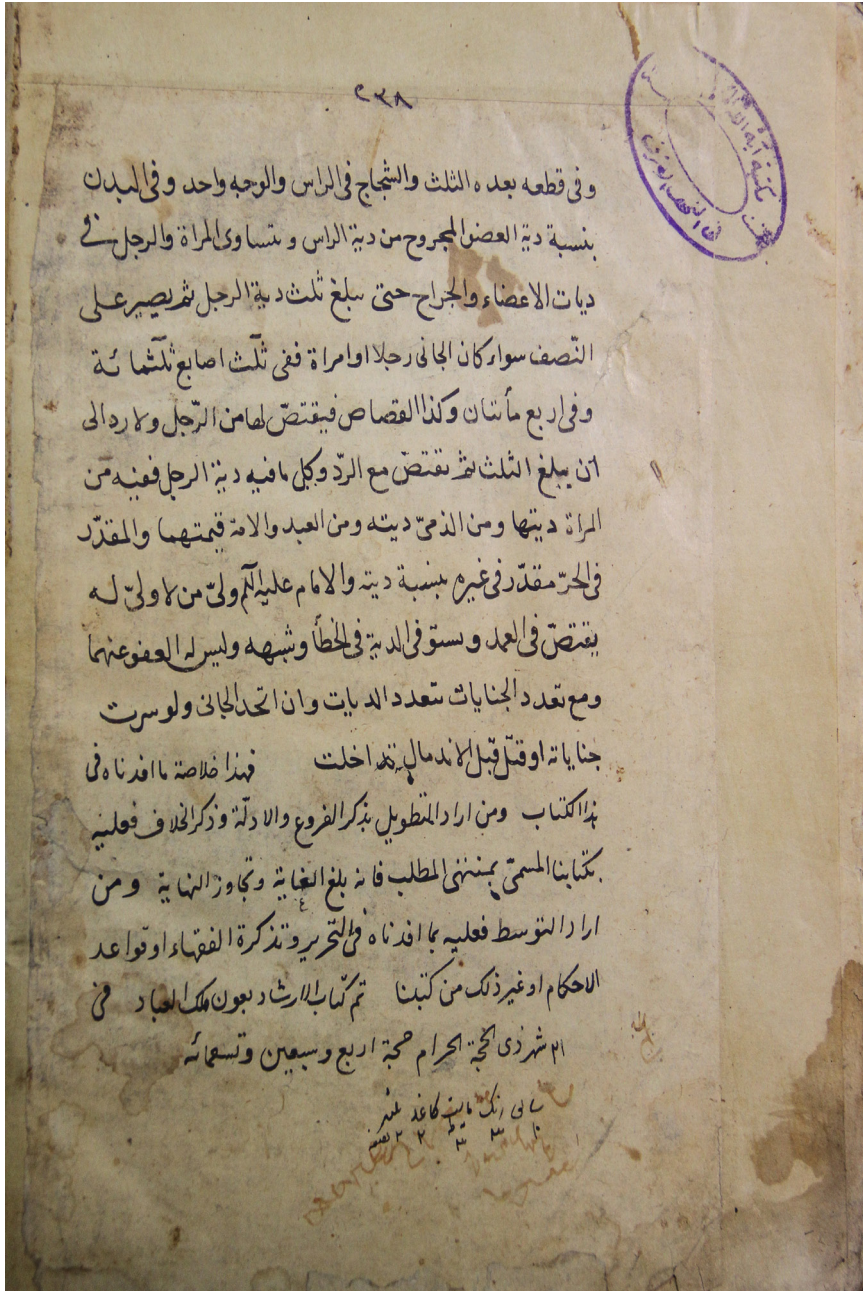 ٢٣٨
وفى قطعه بعده الثلث والشجاج فى الراس والوجه واحد وفى البدن
بنسبة دية العضو المجروح من دية الراس و يتساوى المراة والرجل فى
ديات الاعضاء والجراح حتى يبلغ ثلث دية الرجل ثم يصير على
النّصف سواء كان الجانى رجلا او امراة ففى ثلث اصابع ثلثمائة
وفى اربع مأتان وكذا القصاص فيقتصّ لها من الرّجل ولا رد الى
ان يبلغ الثلث ثم تقتصّ مع الردّ وكل ما فيه دية الرجل ففيه من
المراة ديتها ومن الذمىّ ديته ومن العبد والامة قيمتهما والمقدّر
فى الحرّ مقدّر فى غيره بنسبة ديته والامام عليه السلم ولىّ من لا ولىّ له
يقتصّ فى العمد ويستوفى الدية فى الخطأ وشبهه وليس له العفو عنهما
ومع تعدد الجنايات تتعدد الديات وان اتحد الجانى ولو سرت
جناياته او قتل قبل الاندمال تداخلت فهذا خلاصة ما افدناه فى
هذا الكتاب ومن اراد التطويل بذكر الفروع والادلّة وذكر الخلاف فعليه
بكتابنا المسمىّ بمنتهى المطلب فانه بلغ الغاية وتجاوز النهاية ومن
اراد التوسط فعليه بما افدناه فى التحرير وتذكرة الفقهاء او قواعد
الاحكام او غير ذلك من كتبنا تم كتاب الارشاد بعون ملك العباد فى
شهر ذى الحجة الحرام حجة اربع وسبعين وتسعمائه
كاغذ
مكتبة آية الله